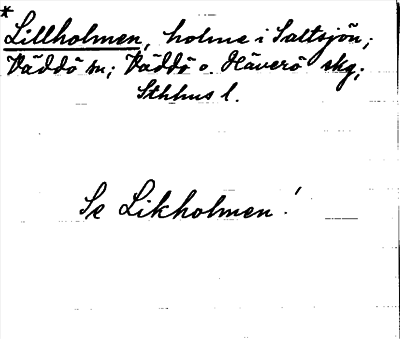 *
Lillholmen, holme i Saltsjön;
Väddö sn; Väddö o. Häverö skg;
Sthhus l.
Se Likholmen!